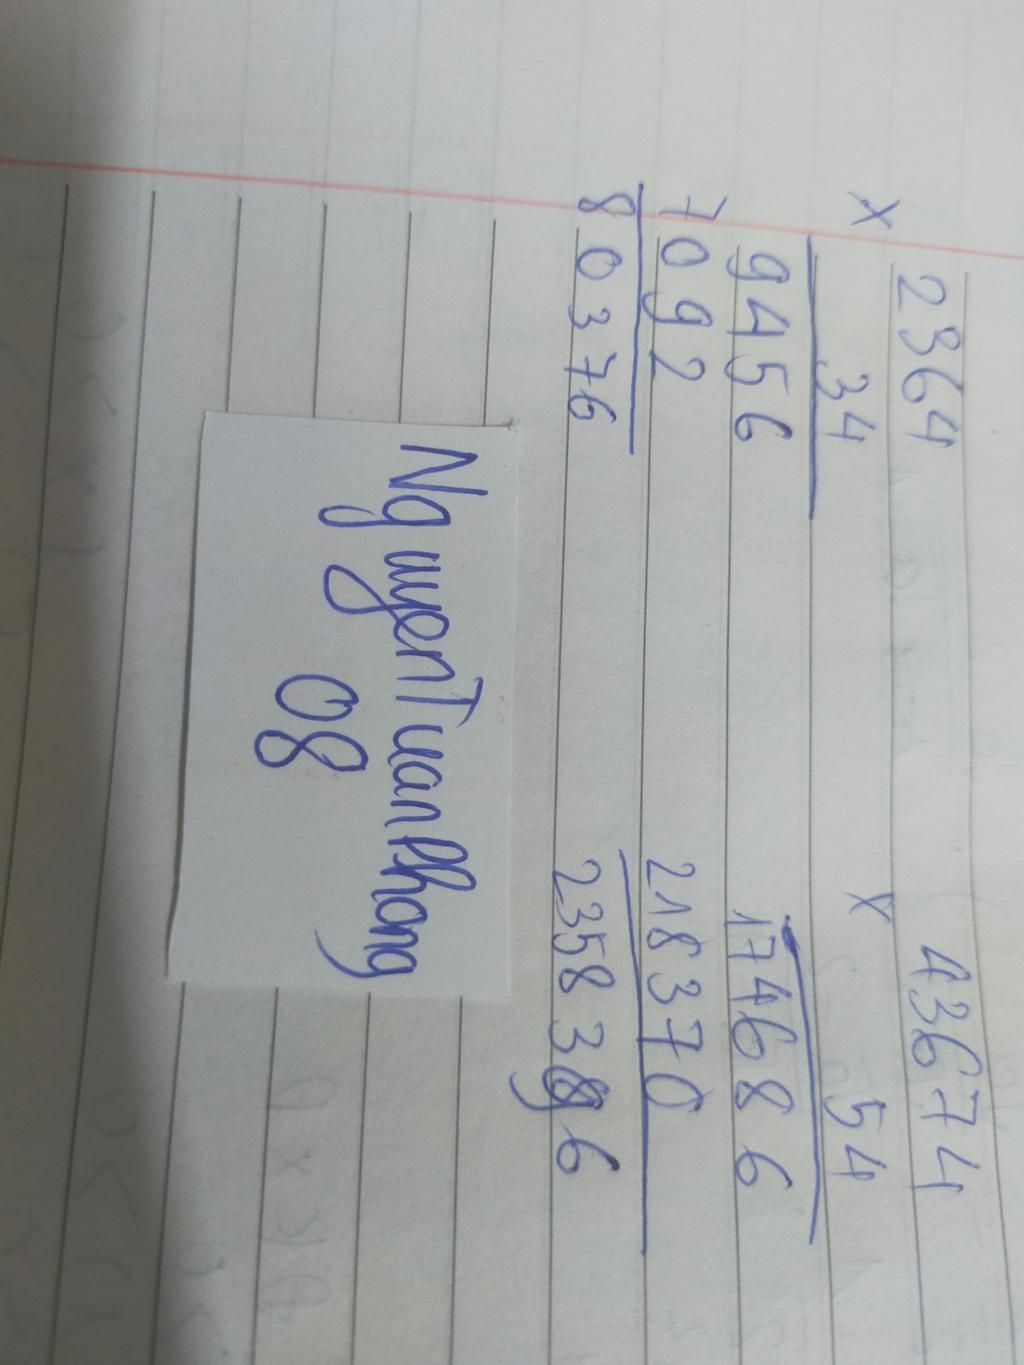 2364
×
34
9456
7092
80376
43674
×
54
174686
218370
NguyenTuanPhong
08